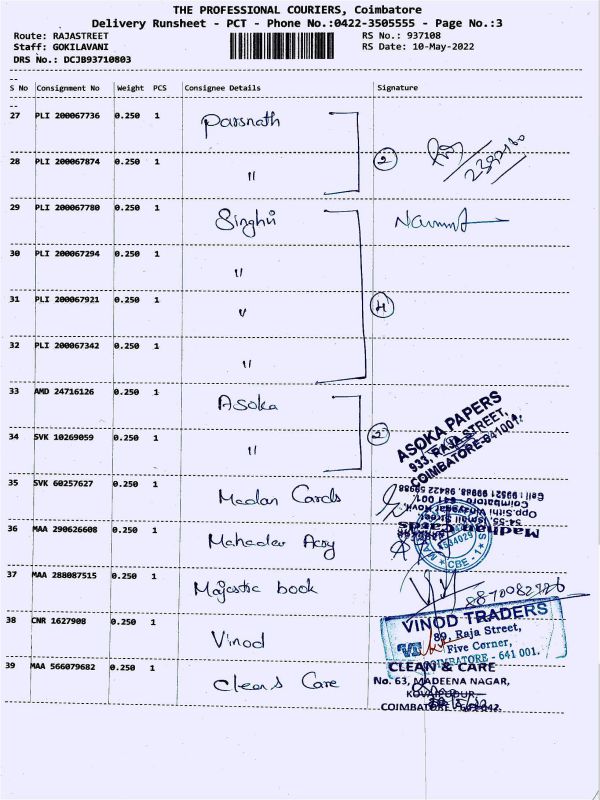 THE PROFESSIONAL COURIERS, Coimbatore
Delivery Runsheet - PCT - Phone No.:0422-3505555 - Page No.:3
Route: RAJASTREET
Staff: GOKILAVANI
DRS No.: DCJB93710803
RS No.: 937108
RS Date: 10-May-2022
S No Consignment No Weight PCS Consignee Details Signature
27 PLI 200067736 0.250 1 Parsnath
28 PLI 200067874 0.250 1 " 2
29 PLI 200067780 0.250 1 Singhvi
30 PLI 200067294 0.250 1 "
31 PLI 200067921 0.250 1 " 4
32 PLI 200067342 0.250 1 "
33 AMD 24716126 0.250 1 Asoka
34 SVK 10269059 0.250 1 " 2
ASOKA PAPERS
933, RAJA STREET,
COIMBATORE-641001.
35 SVK 60257627 0.250 1 Madan Cards
Madhan Cards
54-55, Ismail Street,
Coimbatore - 641 001.
36 MAA 290626608 0.250 1 Mahadev Acry
CBE - 1
37 MAA 288087515 0.250 1 Majestic book
38 CNR 1627908 0.250 1 Vinod
VINOD TRADERS
89, Raja Street,
Five Corner,
COIMBATORE - 641 001.
39 MAA 566079682 0.250 1 Clean & Care
CLEAN & CARE
No. 63, MADEENA NAGAR,
KOVAIPUDUR,
COIMBATORE